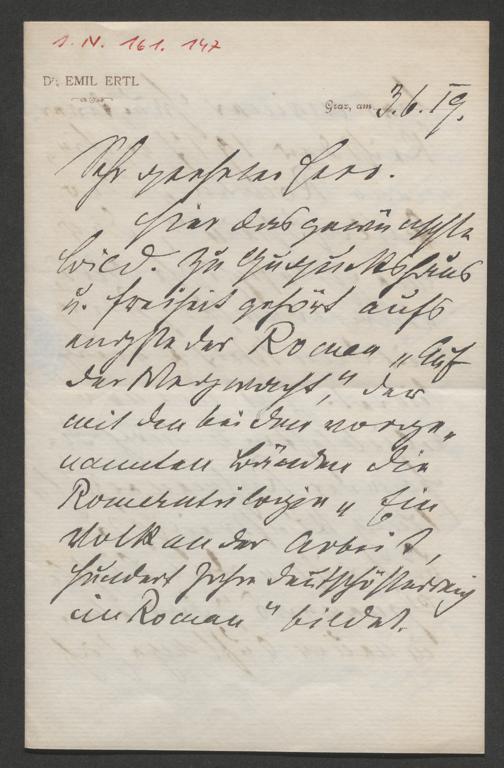 I. N. 161.147
Dr. EMIL ERTL
Graz, am 3.6.19.
Sehr geehrter Herr.
Hier das gewünschte
Bild. Zu Guguckshaus
u. Freiheit gehört aufs
engste der Roman „Auf
der Wegwacht," der
mit den beiden vorge„
nannten Bänden die
Romantrilogie „Ein
Volk an der Arbeit,
hundert Jahre Deutschösterreich
im Roman" bildet.